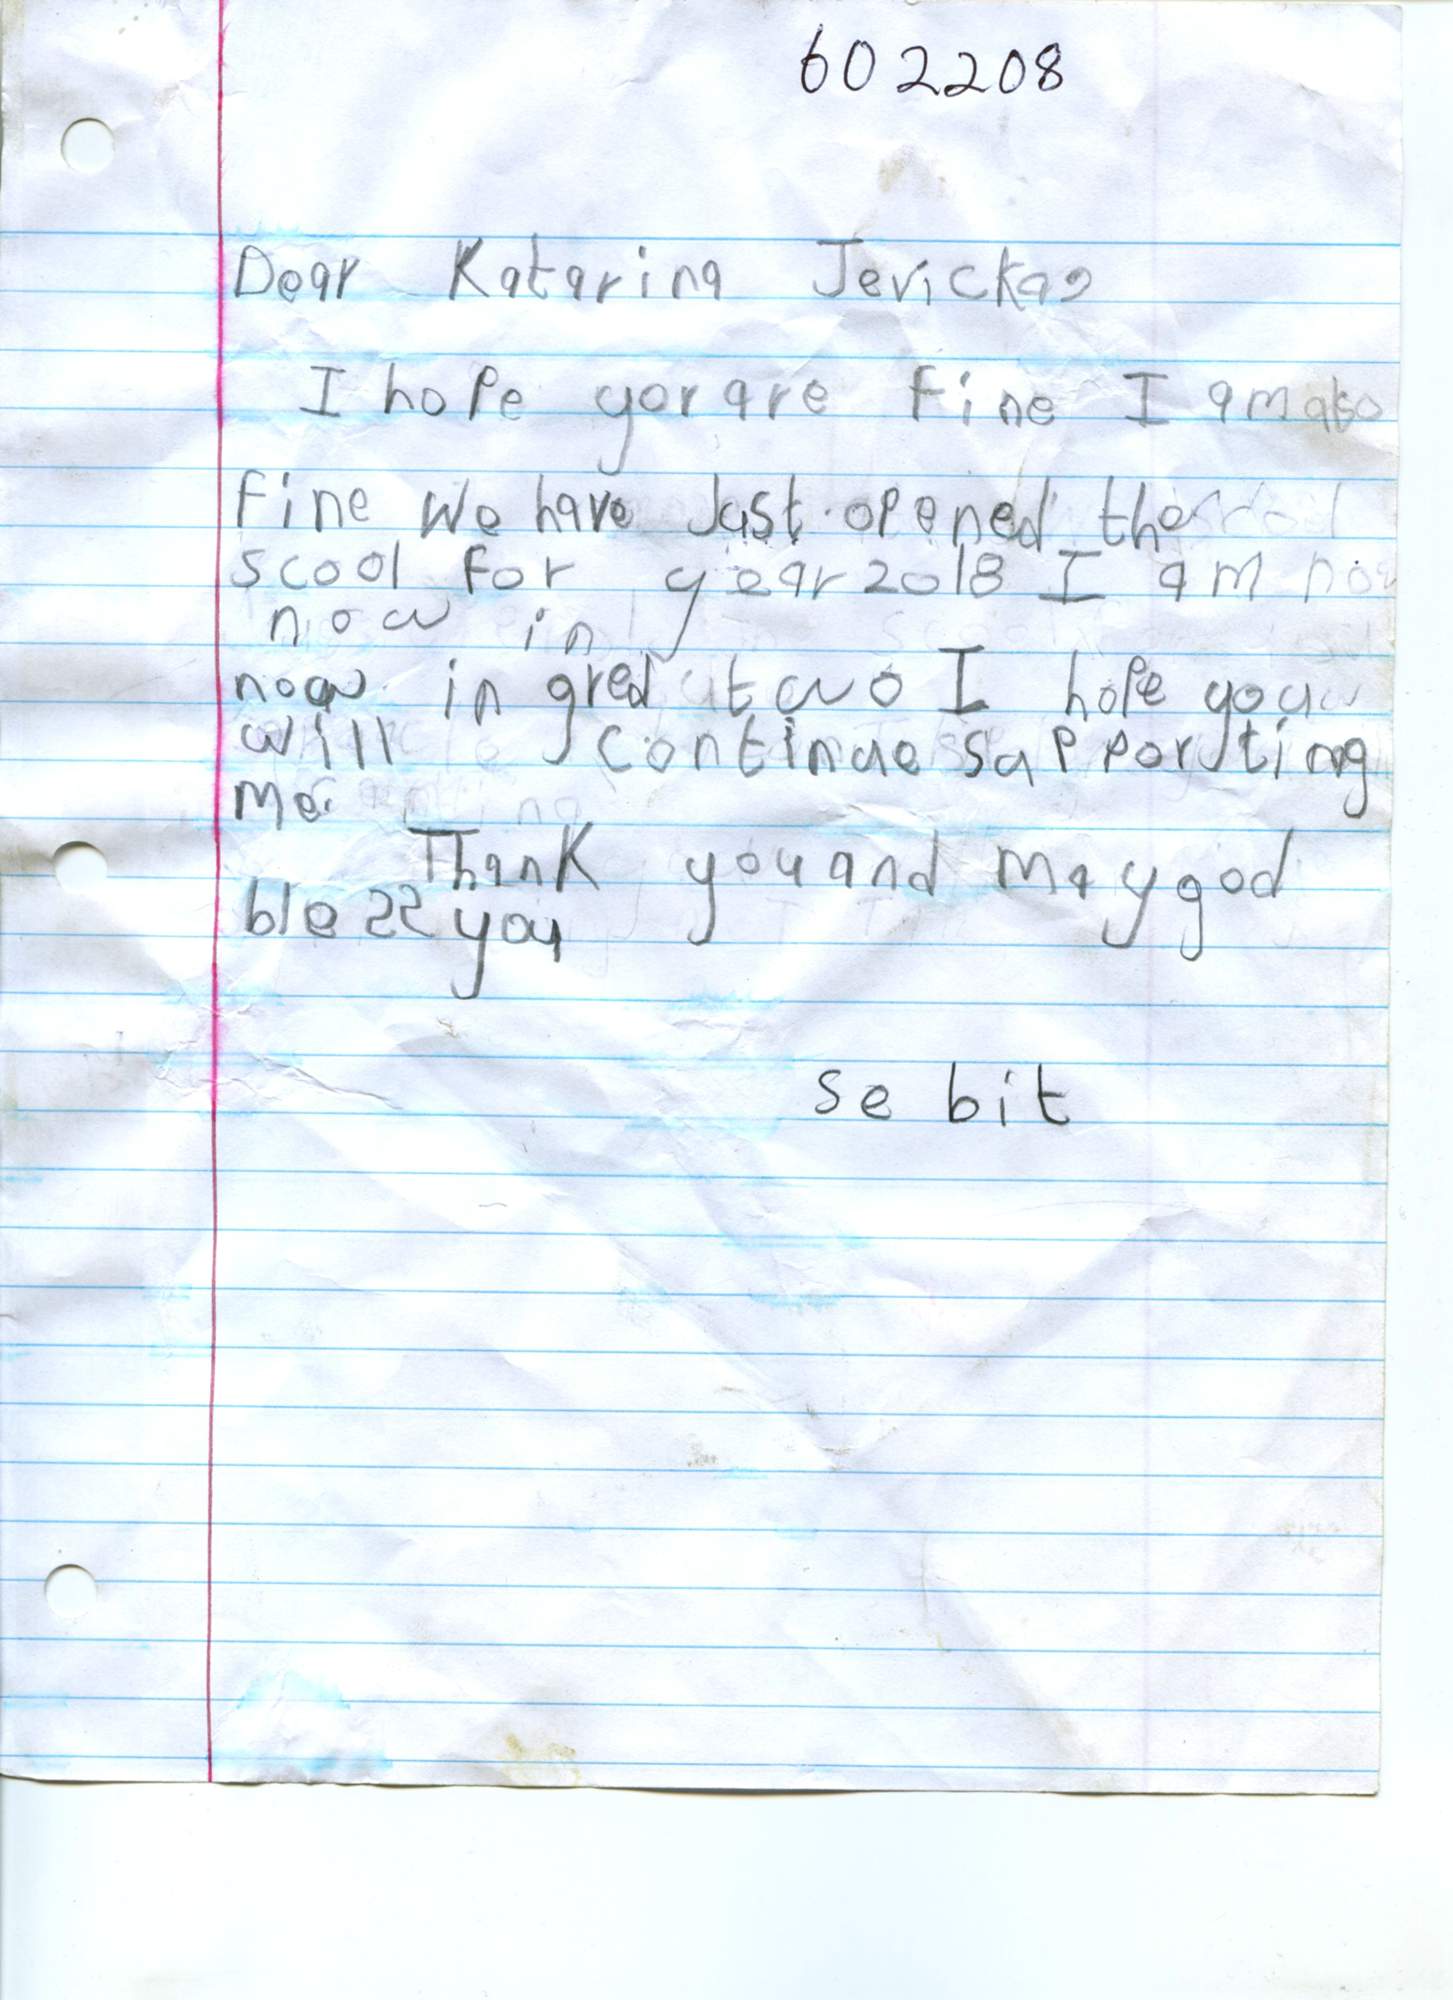 602208
Dear Katarina Jevicka
I hope yor are fine I am also
fine We have Just opened the
scool for year 2018 I am now
now in
now in gred two I hope you
will continue supporting
me.
Thank you and may god
bless you
se bit